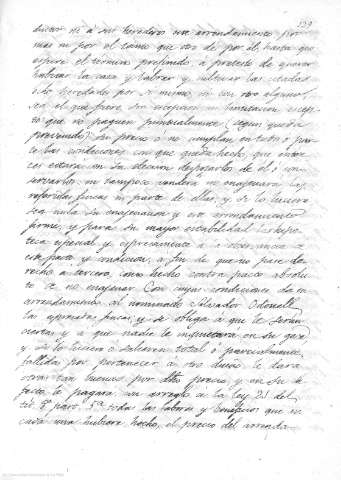 129
ducar ni á sus herederos un arrendamiento por
mas ni por el tanto que otro de por él, hasta que
espire el término prefinido, á pretesto de querer
habitar la casa y labrar y cultivar las citadas
heredades por sí mismo, ni con otro alguno,
sea el que fuere sin escepcion ni limitacion escep-
to que no paguen puntualmente (segun queda
prevenido) su precio ó no cumplan en todo ó par-
te las condiciones con que queda hecho, que enton-
ces estará en su eleccion despojarlos de él ó con-
servarlos: ni tampoco venderá ni enajenará las
referidas fincas ni parte de ellas; y si lo hiciere
sea nula su enajenacion y este arrendamiento
firme, y para su mayor estabilidad las hipo-
teca especial y espresamente á la observancia de
este pacto y condicion, á fin de que no pase de-
recho á tercero, como hecho contra pacto absolu-
to de no enajenar. Con cuyas condiciones da en
arrendamiento al nominado Salvador Odonell
las espresadas fincas; y se obliga á que le serán
ciertas y á que nadie le inquietará en su goce
y si lo hiciere ó salieren total ó parcialmente
fallidas por pertenecer á otro dueño le dará
otras tan buenas por dho precio, y en su de-
fecto le pagará con arreglo á la ley 21 del
tit. 8º part. 5ª todas las labores y beneficios que en
cada una hubiere hecho, el precio del arrenda